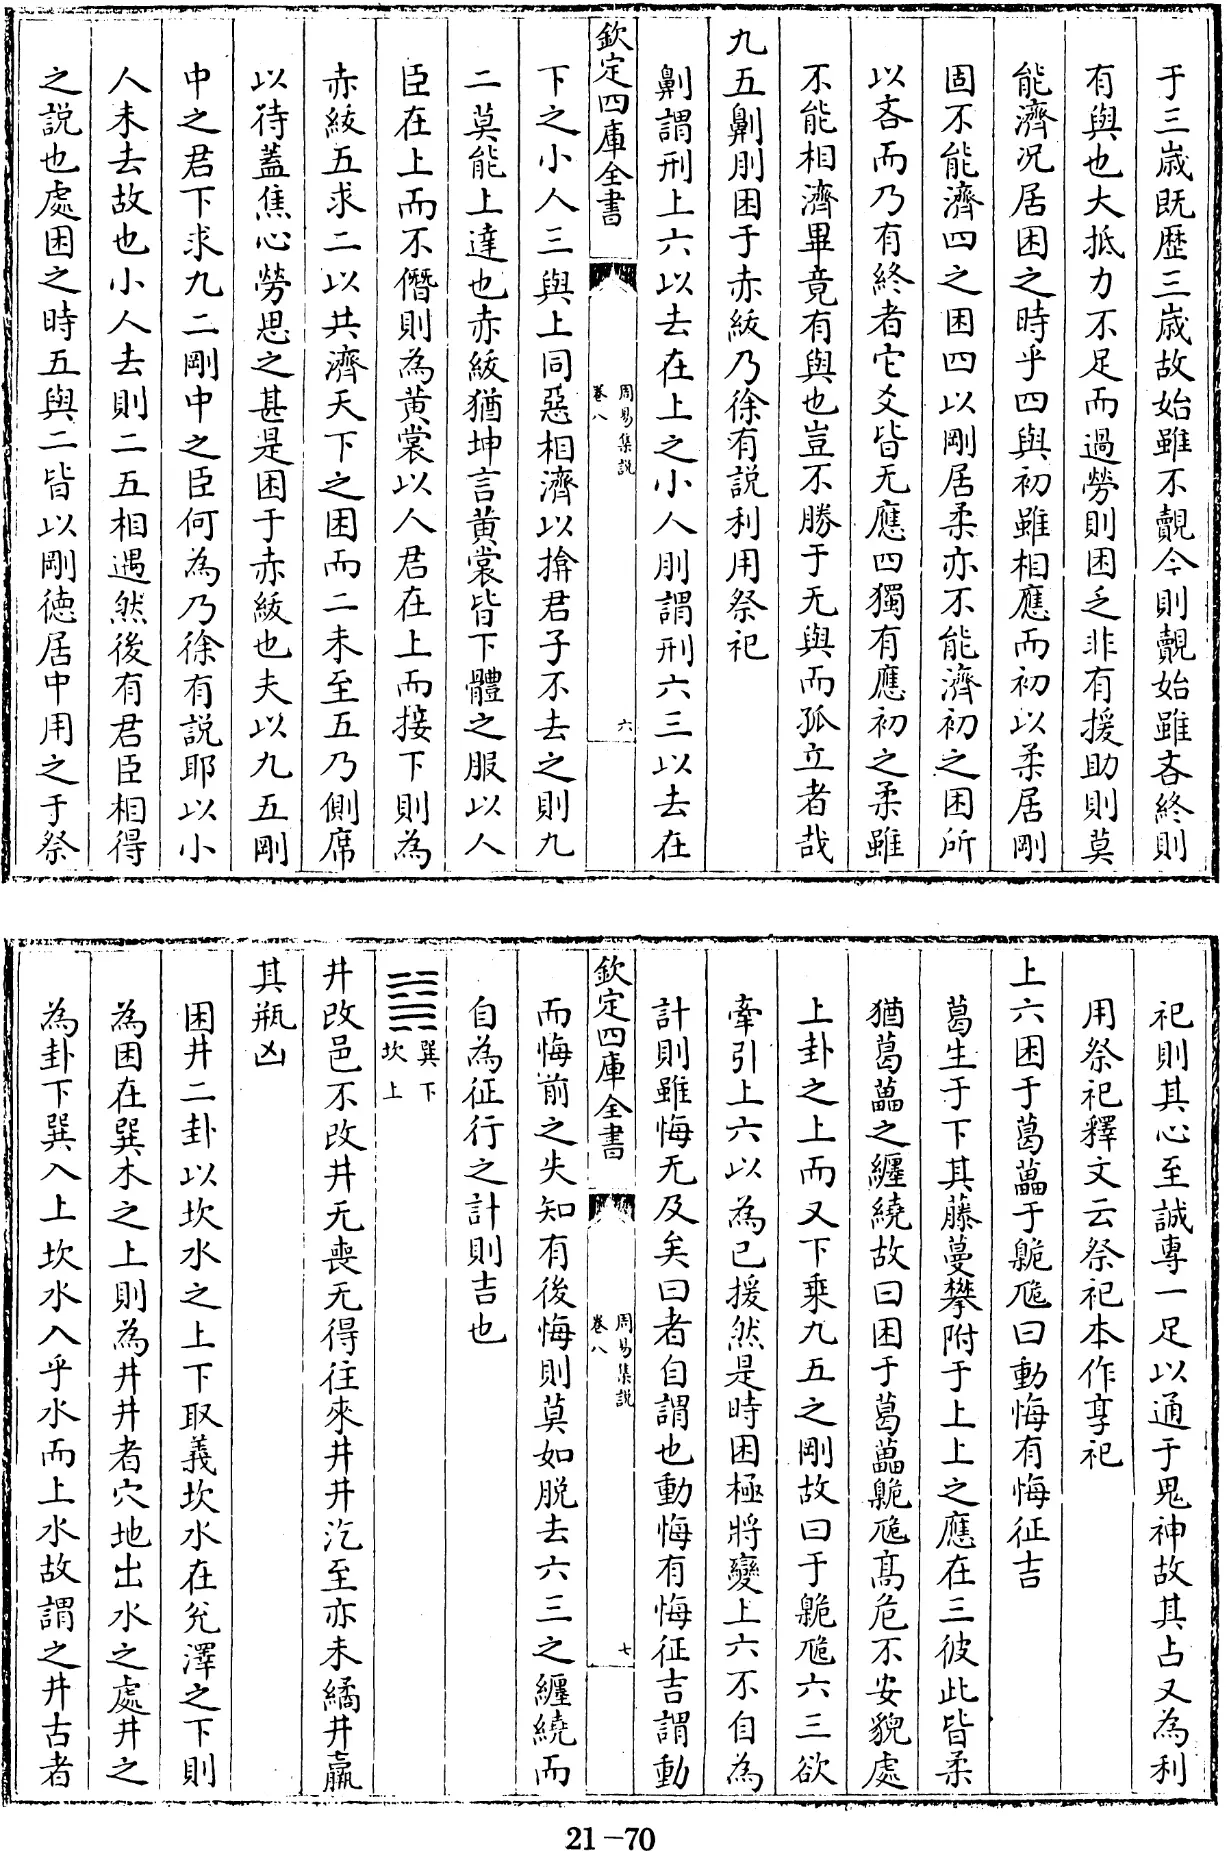 于三歳既歴三歳故始雖不覿今則覿始雖吝終則
有與也大抵力不足而過勞則困乏非有援助則莫
能濟况居困之時乎四與初雖相應而初以柔居剛
固不能濟四之困四以剛居柔亦不能濟初之困所
以吝而乃有終者它爻皆无應四獨有應初之柔雖
不能相濟畢竟有與也豈不勝于无與而孤立者哉
九五劓刖困于赤紱乃徐有説利用祭祀
劓謂刑上六以去在上之小人刖謂刑六三以去在
欽定四庫全書
周易集説
卷八
六
下之小人三與上同惡相濟以揜君子不去之則九
二莫能上達也赤紱猶坤言黄裳皆下體之服以人
臣在上而不僭則為黄裳以人君在上而接下則為
赤紱五求二以共濟天下之困而二未至五乃側席
以待蓋焦心勞思之甚是困于赤紱也夫以九五剛
中之君下求九二剛中之臣何為乃徐有説耶以小
人未去故也小人去則二五相遇然後有君臣相得
之説也處困之時五與二皆以剛徳居中用之于祭
祀則其心至誠專一足以通于鬼神故其占又為利
用祭祀釋文云祭祀本作享祀
上六困于葛藟于臲卼曰動悔有悔征吉
葛生于下其藤蔓攀附于上上之應在三彼此皆柔
猶葛藟之纒繞故曰困于葛藟臲卼髙危不安貌處
上卦之上而又下乗九五之剛故曰于臲卼六三欲
牽引上六以為已援然是時困極將變上六不自為
計則雖悔无及矣曰者自謂也動悔有悔征吉謂動
欽定四庫全書
周易集説
卷八
七
而悔前之失知有後悔則莫如脱去六三之纒繞而
自為征行之計則吉也
䷯巽下
坎上
井改邑不改井无喪无得往來井井汔至亦未繘井羸
其瓶凶
困井二卦以坎水之上下取義坎水在兊澤之下則
為困在巽木之上則為井井者穴地出水之處井之
為卦下巽入上坎水入乎水而上水故謂之井古者
21-70